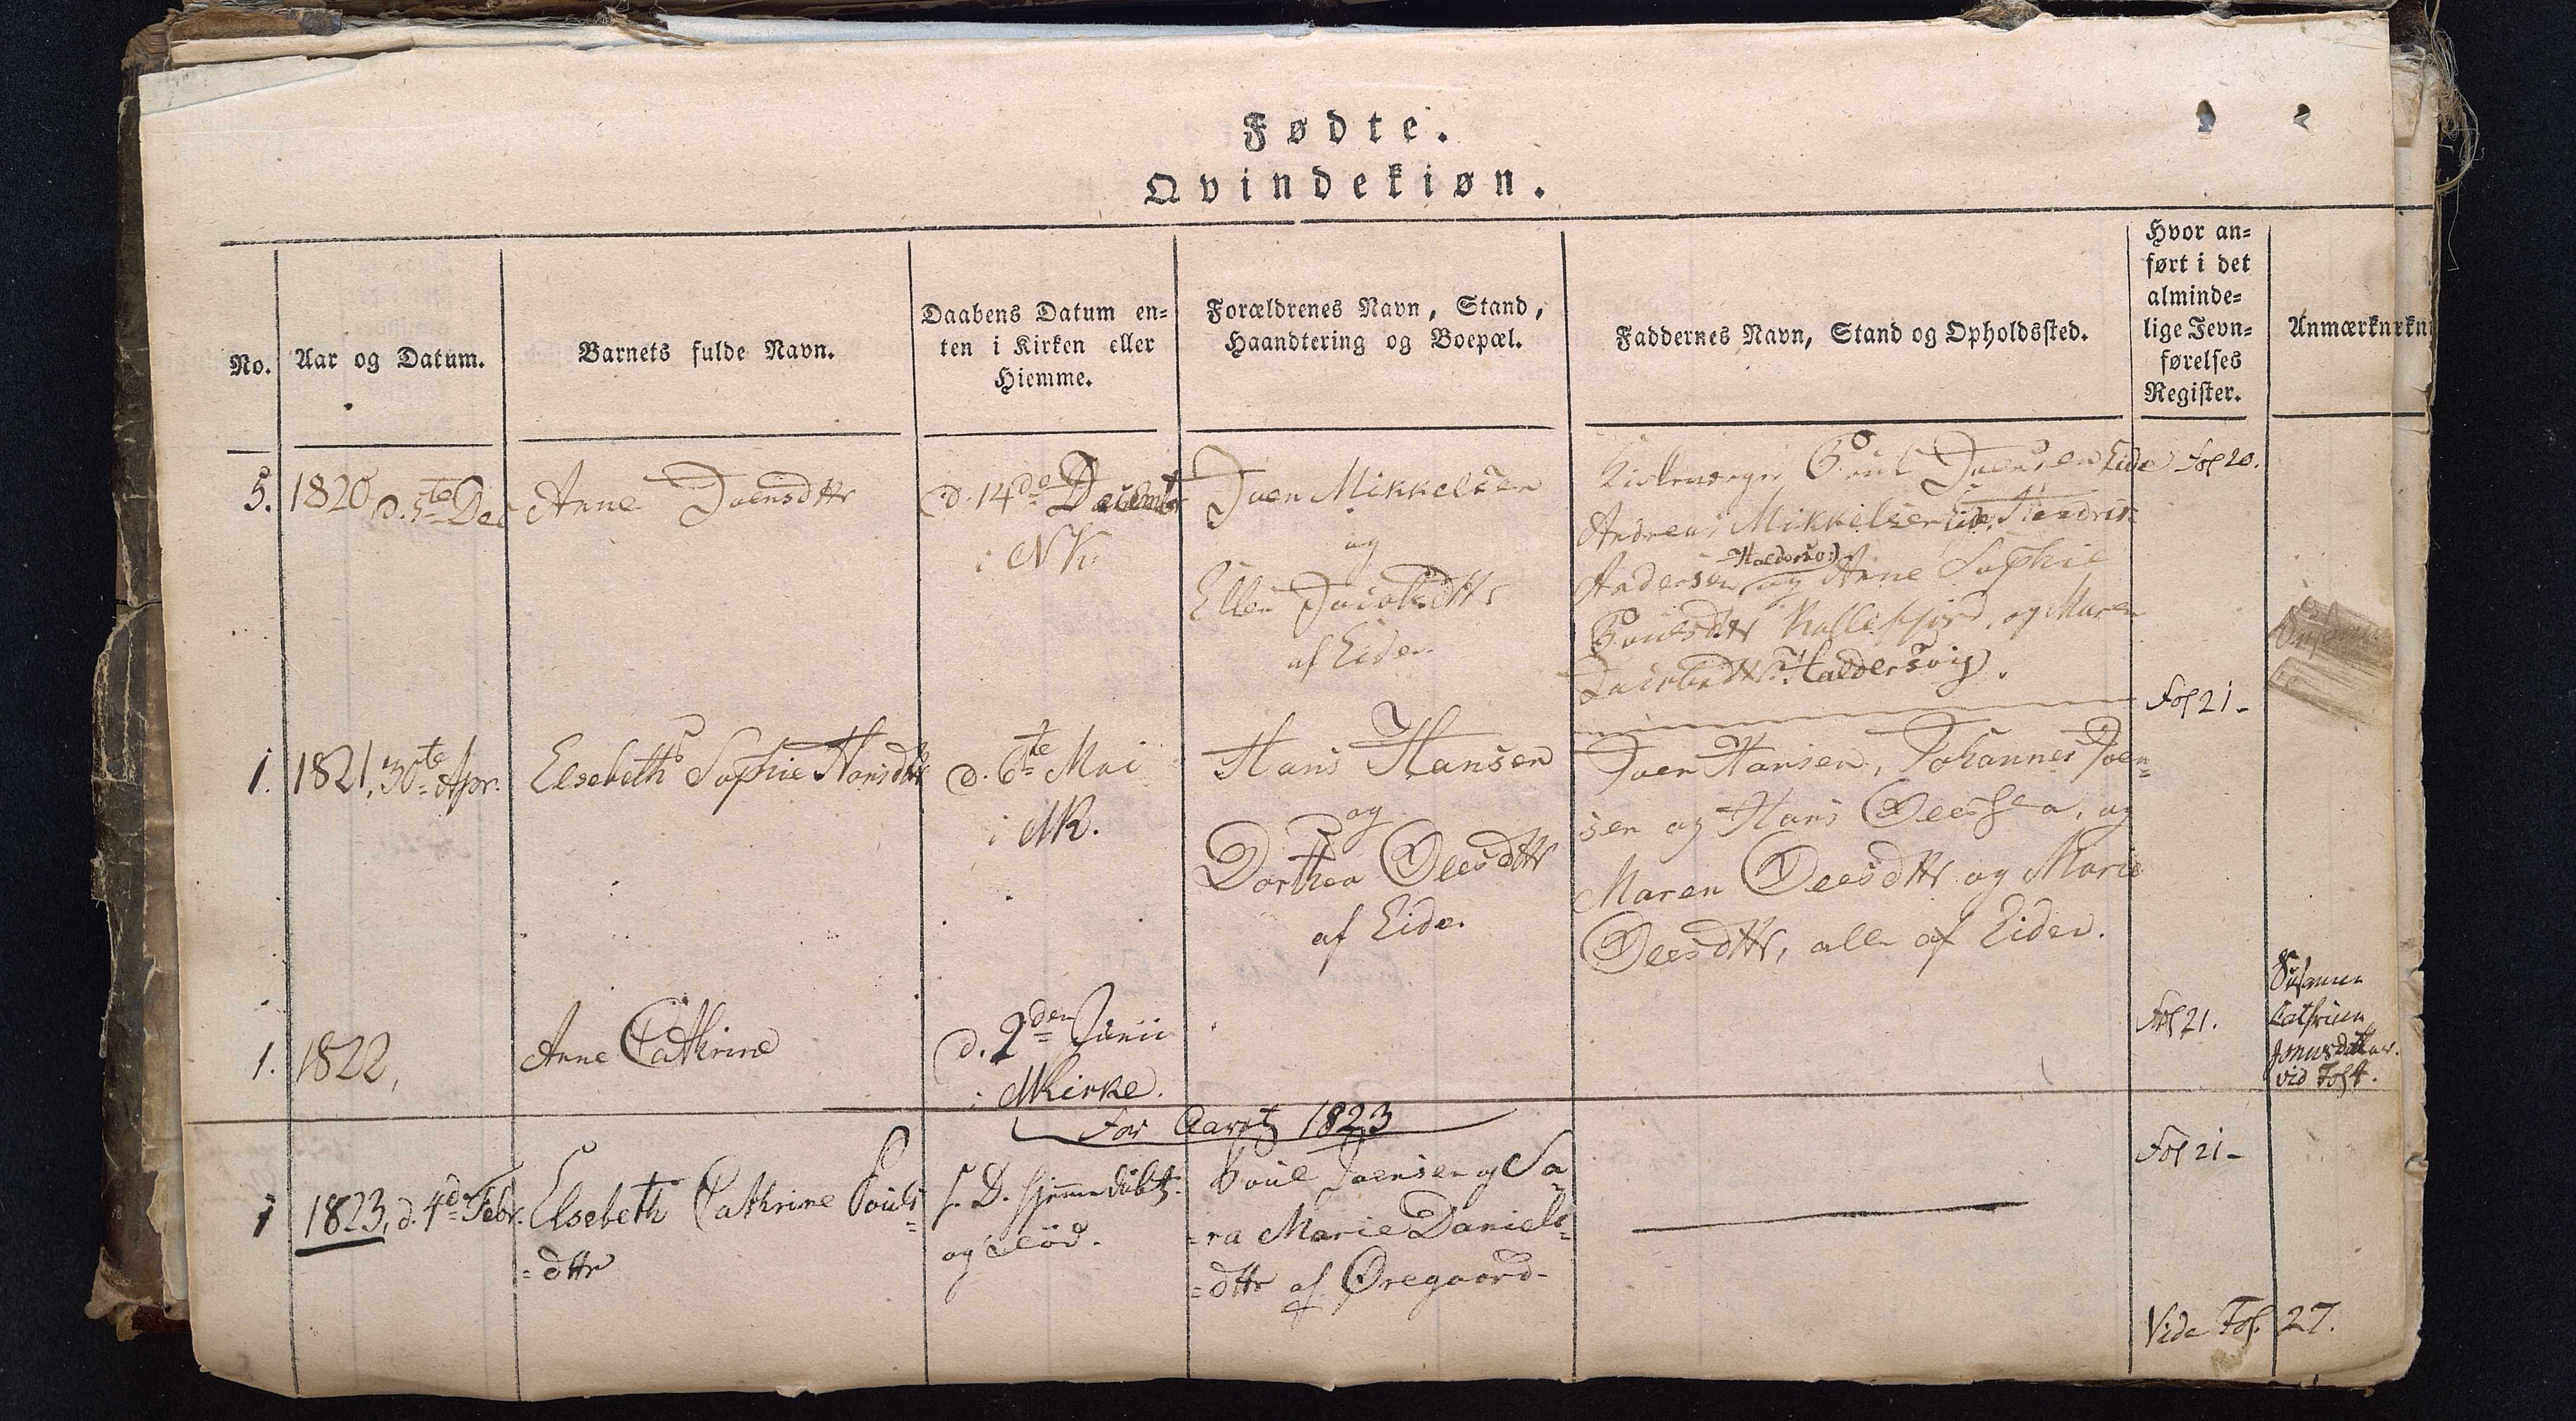 Fødte.
Qvindekiøn.
No.
Aar og Datum.
Barnets fulde Navn.
Daabens Datum en=
ten i Kirken eller
Hiemme.
Forældrenes Navn, Stand,
Haandtering og Boepæl.
Faddernes Navn, Stand og Opholdssted.
Hvor an=
ført i det
alminde=
lige Jevn=
førelses
Register.
Anmærkn
5.
1820, d. 5te Dec
Anne Joensdttr
d. 14de Decembr
i NK.
Joen Mikkelsen
og
Ellen Jacobsdttr
af Eide.
Kirkeværge Poul Joensen Eide
Andreas Mikkelsen Eide, Hendrik
Haldersv:)
Andersen og Anne Sophie
Poulsdttr Kollefjord, og Maren
Jacobsdttr Haldersvig.
Fol 20.
1.
1821, 30te Apr.
Elsebeth Sophie Hansdttr
d. 6te Mai
i NK.
Hans Hansen
og
Dorthea Olesdttr
af Eide.
Joen Hansen, Johannes Joen=
sen og Hans Olesen, og
Maren Olesdttr og Marie
Olesdttr, alle af Eide.
Fol 21-
1.
1822,
Anne Cathrine
d. 2den Junii
i NKirke.
Fol 21.
Susanne
Cathrine
Jonusdatter.
vid Toft.
For Aaret 1823
1
1823, d. 4de Febr.
Elsebeth Cathrine Pouls=
=dttr
s. D. hjemmedøbt
og død.
Poul Joensen og Sa=
=ra Marie Daniels=
=dttr af Øregaard-
Fol 21-
Vide Fol. 27.